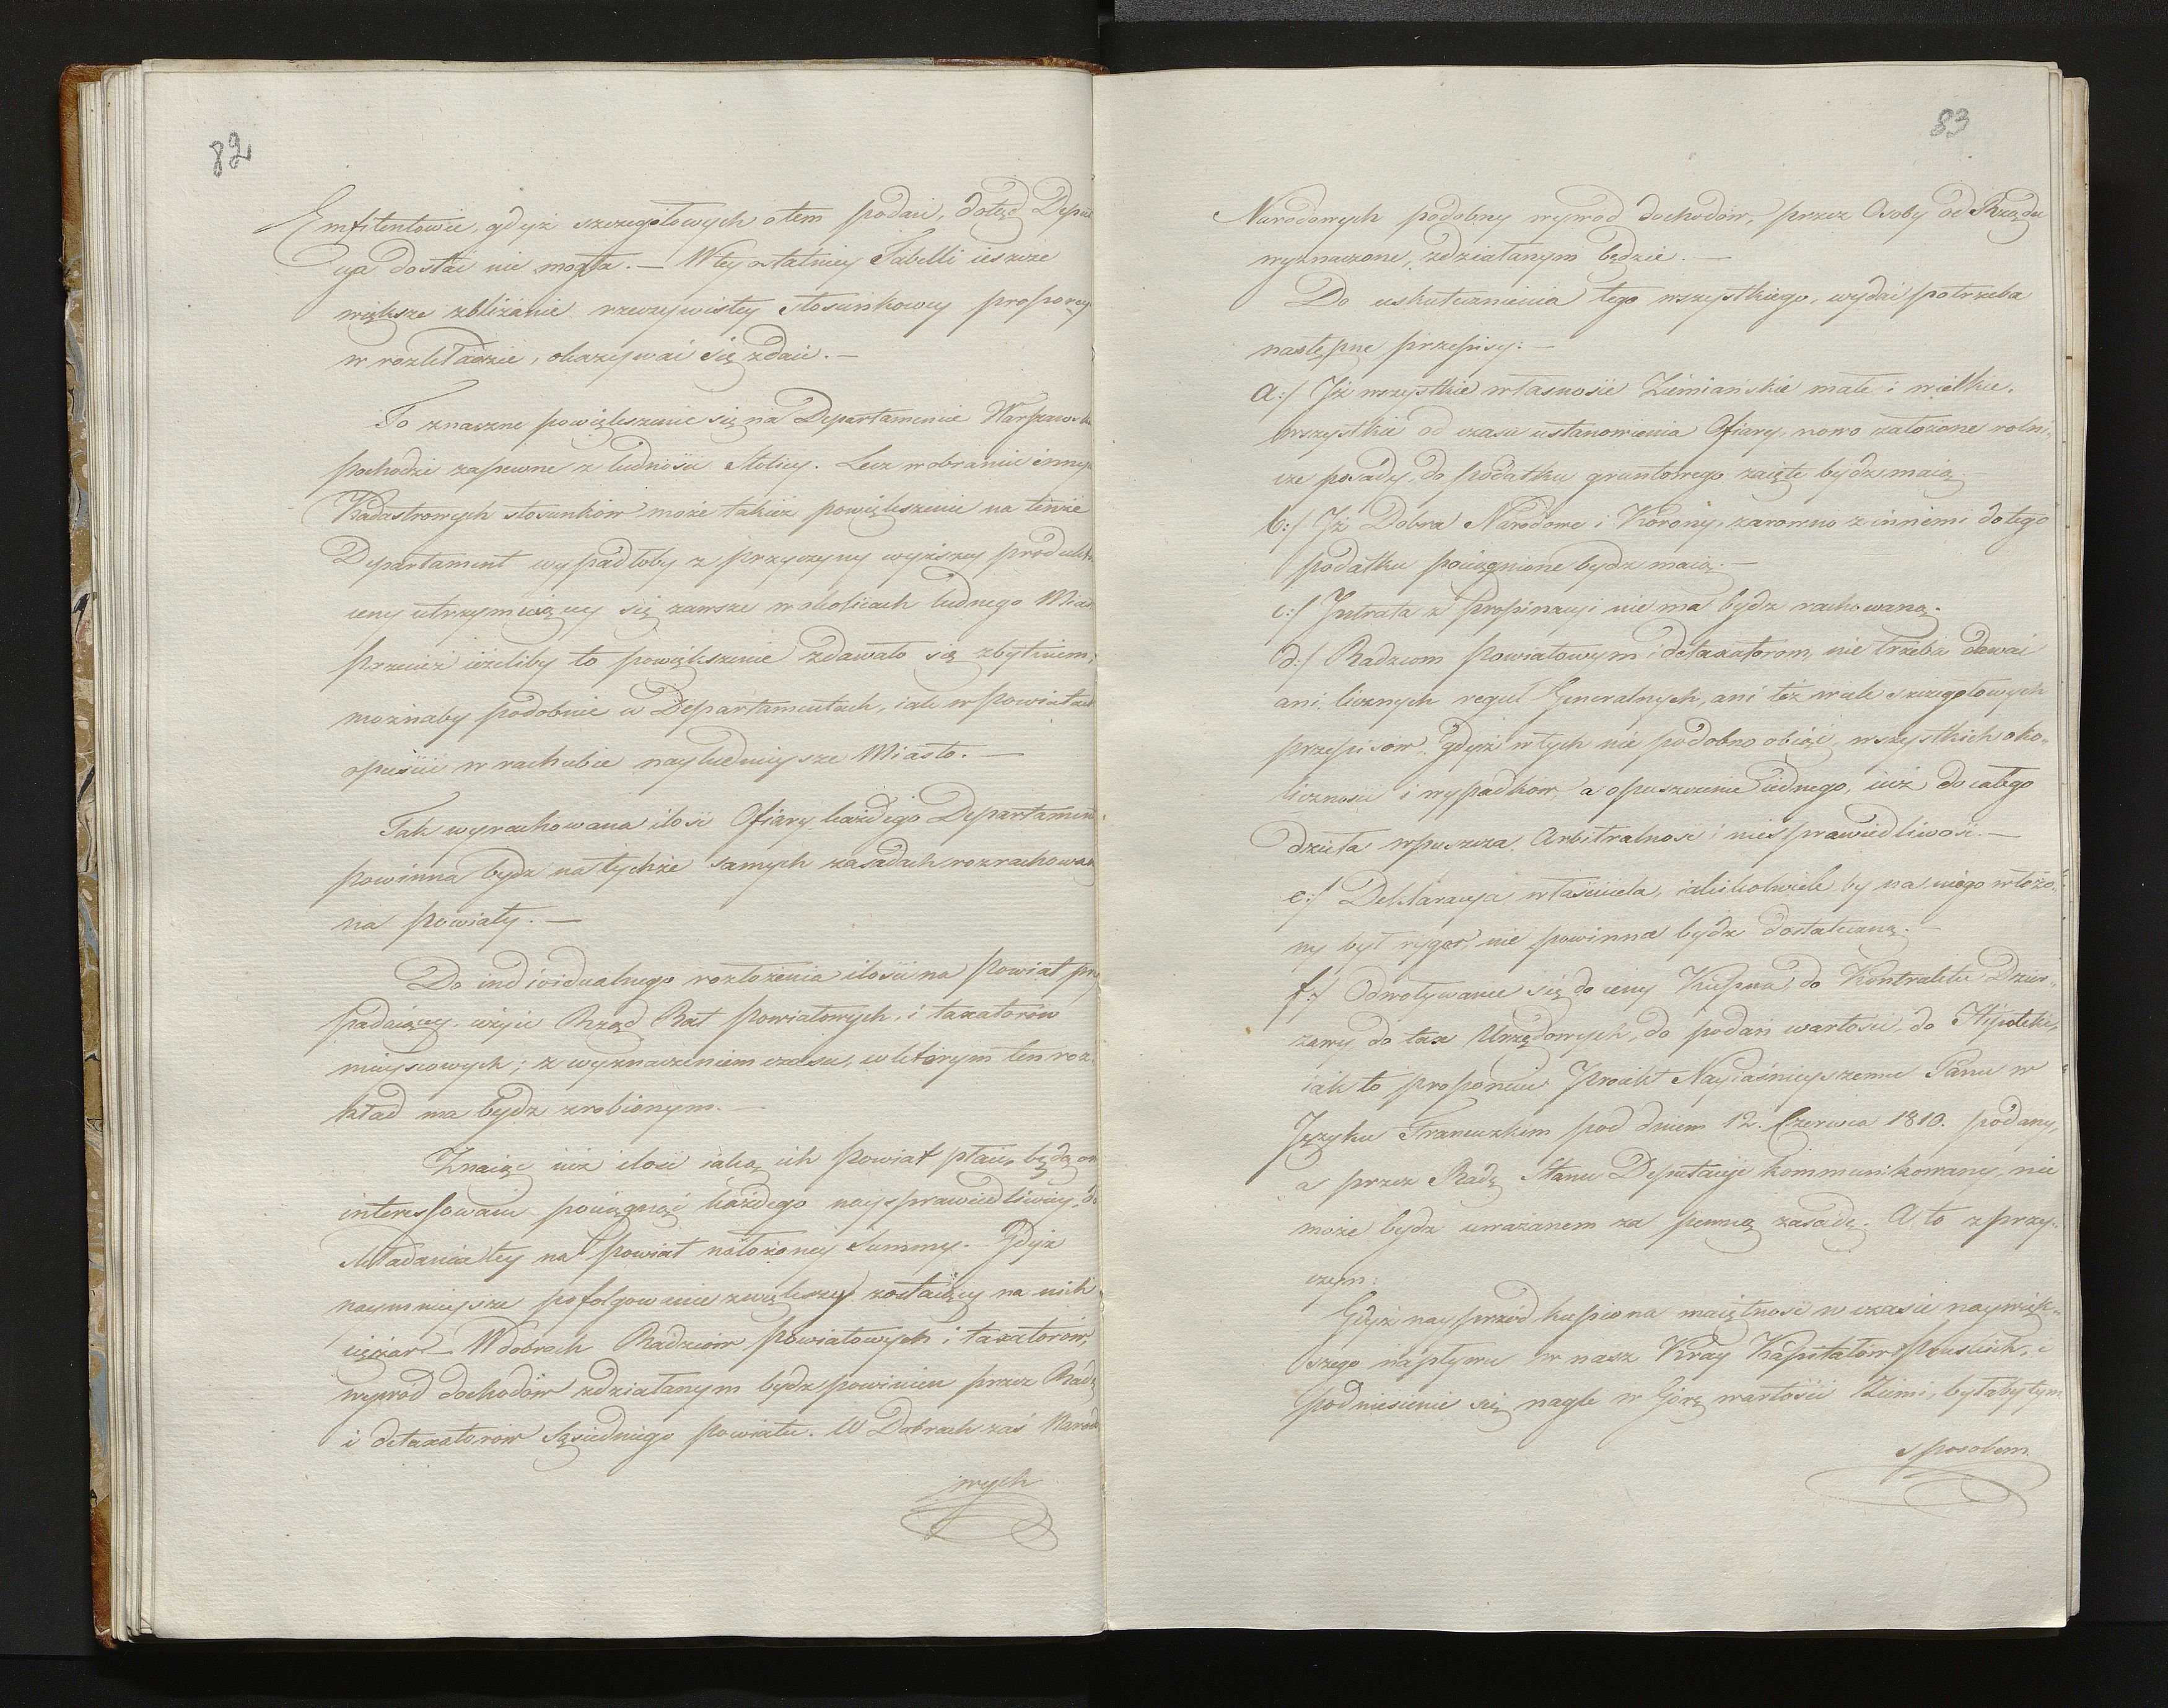 82
Emfitentowie, gdyż szczegołowych o tem podań, dotąd Deputa
cya dostać nie mogła. — W tey ostatniey Tabelli ieszcze
większe zbliżanie rzeczywistey stosunkowey proporcyi
w rozkładzie, okazywać się zdaie. —
To znaczne powiększenie się na Departamencie Warszawsk
pochodzi zapewne z ludności Stolicy. Lecz w obraniu innych
Kadastrowych stosunków może takież powiększenie na tenże
Departament wypadłoby z przyczyny wyższey produktu
ceny utrzymuiącey się zawsze w okolicach ludnego Miasta
przecież ieżeliby to powiększenie zdawało się zbytniem,
możnaby podobnie w Departamentach, iak w powiatach
opuścić w rachubie nayludnieysze Miasto. —
Tak wyrachowana ilość Ofiary każdego Departament
powinna bydź na tychże samych zasadach rozrachowana
na powiaty. —
Do individualnego rozłożenia ilości na powiat przy
padaiącey, użyie Rząd Rad powiatowych, i taxatorów
mieyscowych; z wyznaczeniem czasu, w którym ten roz-
kład ma bydź zrobionym. —
Znaiąc iuż ilość iaką ich powiat płaci, będą oni
interessowani pociągnąć każdego naysprawiedliwiey do
składania tey na powiat nałożoney Summy. Gdyż
naymnieysze pofolgowanie zwiększy zostaiący na nich
ciężar — W dobrach Radzców powiatowych i taxatorów,
wywód dochodów zdziałanym bydź powinien przez Radę
i detaxatorów sąsiedniego powiatu. W Dobrach zaś Narodo
wych
83
Narodowych podobny wywod dochodów, przez Osoby od Rządu
wyznaczone, zdziałanym będzie. —
Do uskutecznienia tego wszystkiego, wydać potrzeba
następne przepisy: —
a:/ Iż wszystkie własności Ziemiańskie małe i wielkie,
wszystkie od czasu ustanowienia Ofiary, nowo założone rolni-
cze posady, do podatku gruntowego zaięte bydź maią.
b:/ Iż Dobra Narodowe i Korony, zarowno z innemi do tego
podatku pociągnione bydź maią. —
c:/ Intrata z propinacyi nie ma bydź rachowaną.
d:/ Radzcom powiatowym i detaxatorom, nie trzeba dawać
ani licznych reguł Generalnych, ani też wiele szczegołowych
przepisów. Gdyż w tych nie podobno obiąć, wszystkich oko-
liczności i wypadków, a opuszczenie iednego, iuż do całego
dzieła wpuszcza Arbitralność i niesprawiedliwość. —
e:/ Deklaracya właściciela, iakikolwiek by na niego włożo-
ny był rygor, nie powinna bydź dostateczną. —
f:/ Odwoływanie się do ceny Kupna, do Kontraktu Dzier-
żawy, do tax Urzędowych, do podań wartości, do Hipoteki,
iak to proponuie Proiekt Nayiaśnieyszemu Panu w
Języku Francuzkim pod dniem 12. Czerwca 1810. podany,
a przez Radę Stanu Deputacyi kommunikowany, nie
może bydź uważanem za pewną zasadę. A to z przy-
czyn:
Gdyż nayprzód kupiona maiętność w czasie naywięk-
szego napływu w nasz Kray Kapitałów Pruskich, i
podniesienie się nagłe w Górę wartości Ziemi, byłaby tym
sposobem